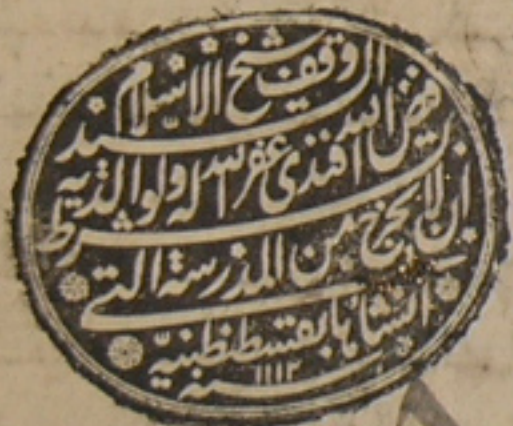 وقف شيخ الاسلام
السيد
فيض الله افندى غفر الله له ولوالديه
بشرط
ان لا يخرج من المدرسة التي
انشاها بقسطنطينية
سنه ١١١٢